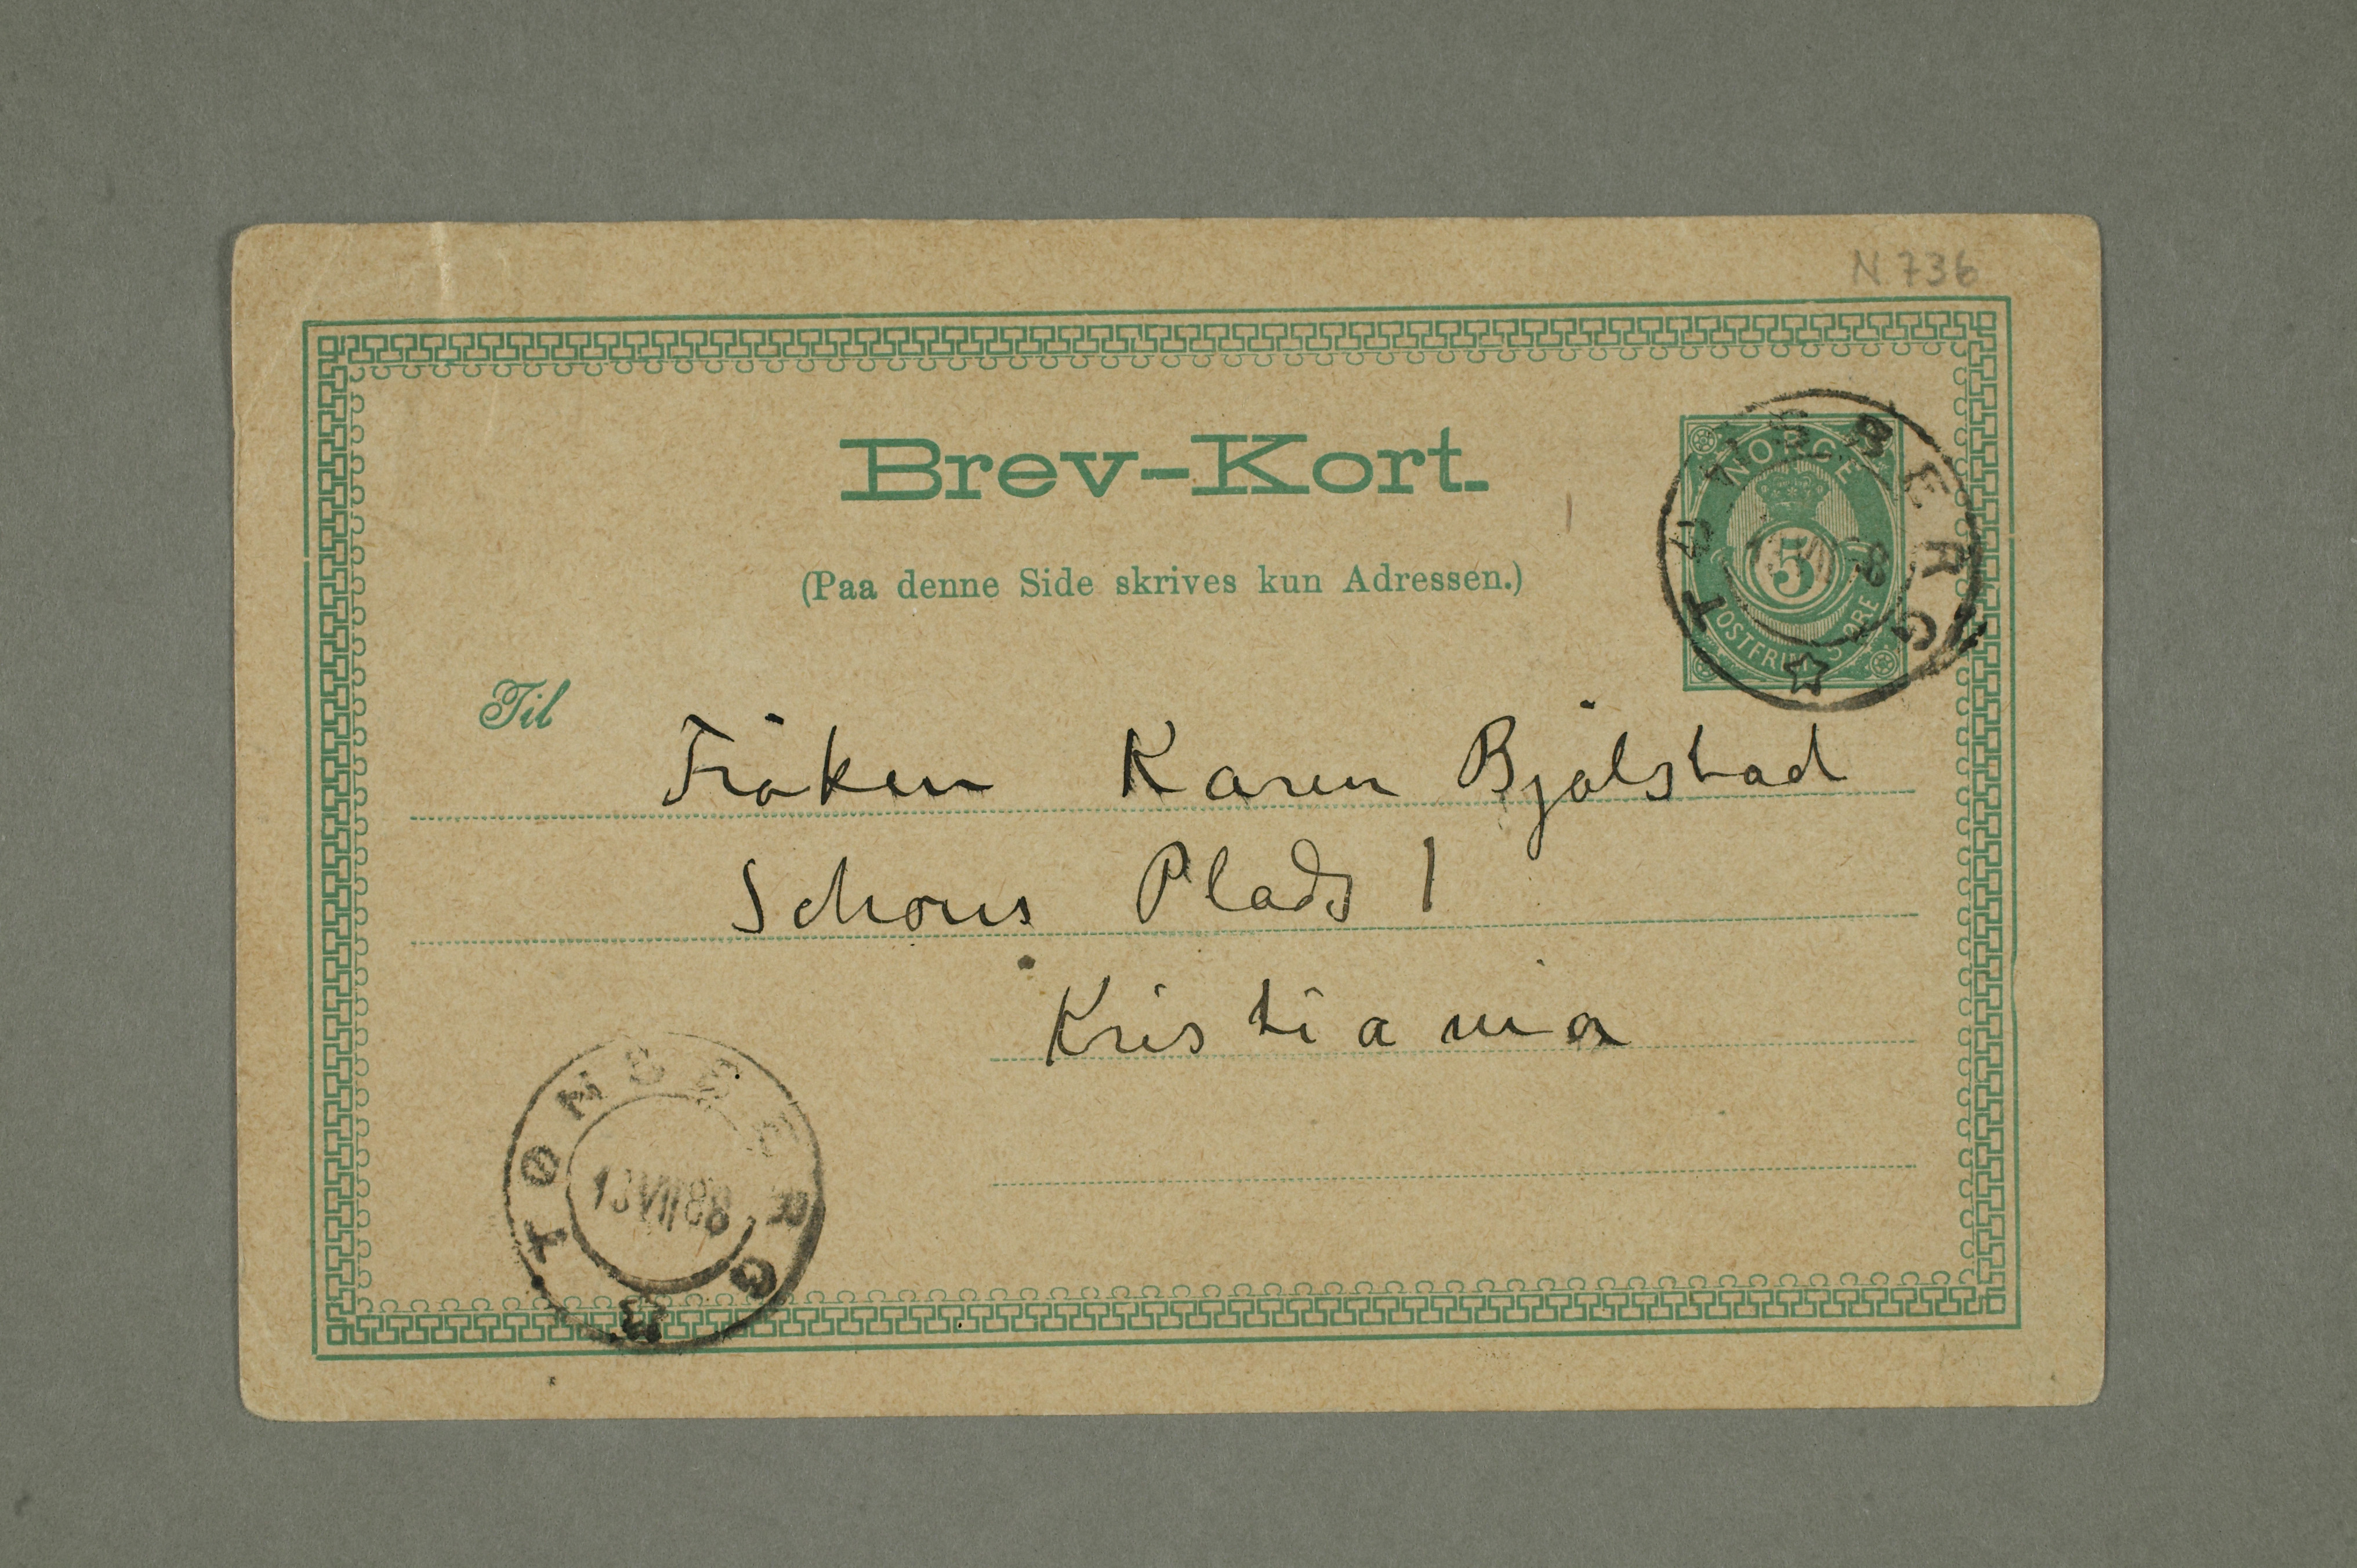 N 736
Brev-Kort.
(Paa denne Side skrives kun Adressen.)
NORGE
5
POSTFRIM. 5 ØRE
TØNSBERG
Til Fröken Karen Bjølstad
Schous Plads 1
Kristiania
TØNSBERG
13 VII 88